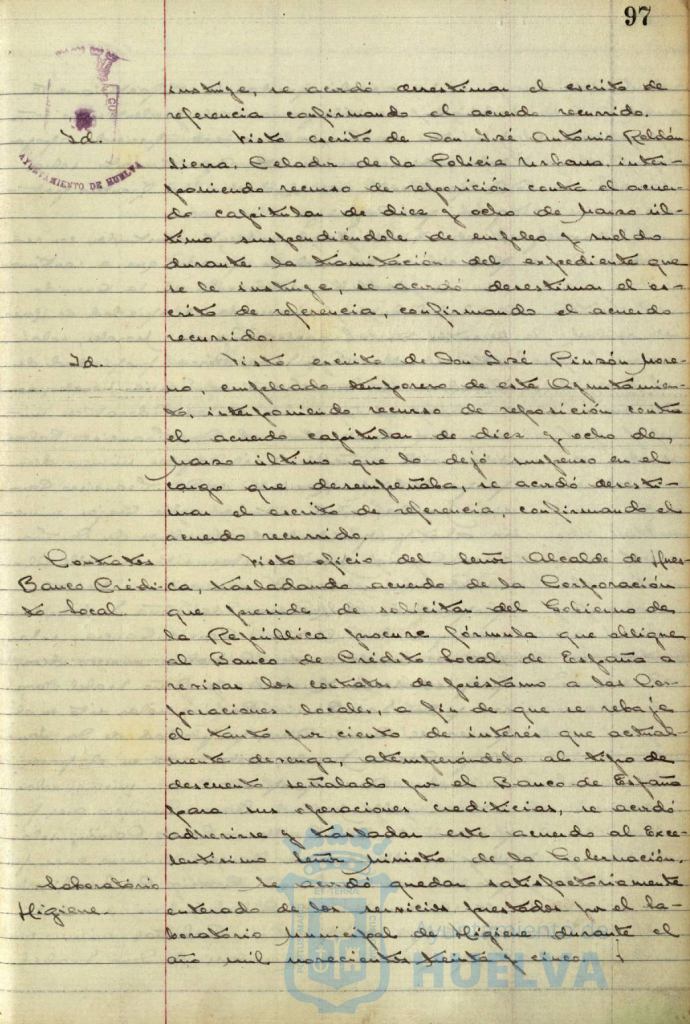 97
instruye, se acordó desestimar el escrito de
referencia confirmando el acuerdo recurrido.
Id.
Visto escrito de Don José Antonio Roldán
Sierra, Celador de la Policía Urbana, inter-
poniendo recurso de reposición contra el acuer-
do capitular de diez y ocho de Marzo úl-
timo suspendiéndole de empleo y sueldo
durante la tramitación del expediente que
se le instruye, se acordó desestimar el es-
crito de referencia, confirmando el acuerdo
recurrido.
Id.
Visto escrito de Don José Pinzón More-
no, empleado temporero de este Ayuntamien-
to, interponiendo recurso de reposición contra
el acuerdo capitular de diez y ocho de
Marzo último que lo dejó suspenso en el
cargo que desempeñaba, se acordó desesti-
mar el escrito de referencia, confirmando el
acuerdo recurrido.
Contratos
Banco Crédi-
to Local
Visto oficio del Señor Alcalde de Hues-
ca, trasladando acuerdo de la Corporación
que preside de solicitar del Gobierno de
la República procure fórmula que obligue
al Banco de Crédito Local de España a
revisar los contratos de préstamo a las Cor-
poraciones locales, a fin de que se rebaje
el tanto por ciento de interés que actual-
mente devenga, atemperándolo al tipo de
descuento señalado por el Banco de España
para sus operaciones crediticias, se acordó
adherirse y trasladar este acuerdo al Exce-
lentísimo Señor Ministro de la Gobernación.
Laboratorio
Higiene.
Se acordó quedar satisfactoriamente
enterado de los servicios prestados por el La-
boratorio Municipal de Higiene durante el
año mil novecientos treinta y cinco.
AYUNTAMIENTO DE HUELVA
HUELVA